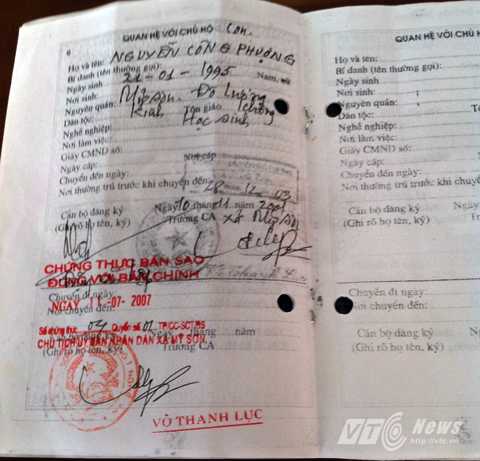 6
QUAN HỆ VỚI CHỦ HỘ Con
Họ và tên: NGUYỄN CÔNG PHƯỢNG
Bí danh (tên thường gọi):
Ngày sinh 21-01-1995 Nam, nữ
Nơi sinh:
Nguyên quán: Mỹ Sơn. Đô Lương
Dân tộc: Kinh Tôn giáo không
Nghề nghiệp: Học sinh
Nơi làm việc:
Giấy CMND số: Nơi cấp
Ngày cấp:
Chuyển đến ngày:
Nơi thường trú trước khi chuyển đến:
Ngày 10 tháng 11 năm 2001
Cán bộ đăng ký Trưởng CA xã Mỹ Sơn
(Ghi rõ họ tên, ký)
CHỨNG THỰC BẢN SAO
ĐÚNG VỚI BẢN CHÍNH
Chuyển đi ngày:
NGÀY 11-07-2007
Nơi chuyển đến:
Số chứng thực 03 Quyển số 01 TP/CC-SCT/BS
tháng năm
CHỦ TỊCH UỶ BAN NHÂN DÂN XÃ MỸ SƠN
(Ghi rõ họ tên, ký) Trưởng CA
VÕ THANH LỰC
QUAN HỆ VỚI CHỦ HỘ
Họ và tên:
Bí danh (tên thường gọi):
Ngày sinh
Nơi sinh:
Nguyên quán:
Dân tộc:
Nghề nghiệp:
Nơi làm việc:
Giấy CMND số:
Ngày cấp:
Chuyển đến ngày:
Nơi thường trú trước khi chuyển
Cán bộ đăng ký
(Ghi rõ họ tên, ký)
Chuyển đi ngày:
Nơi chuyển đến:
Cán bộ đăng ký
(Ghi rõ họ tên, ký)
VTC News
http://vtc.vn